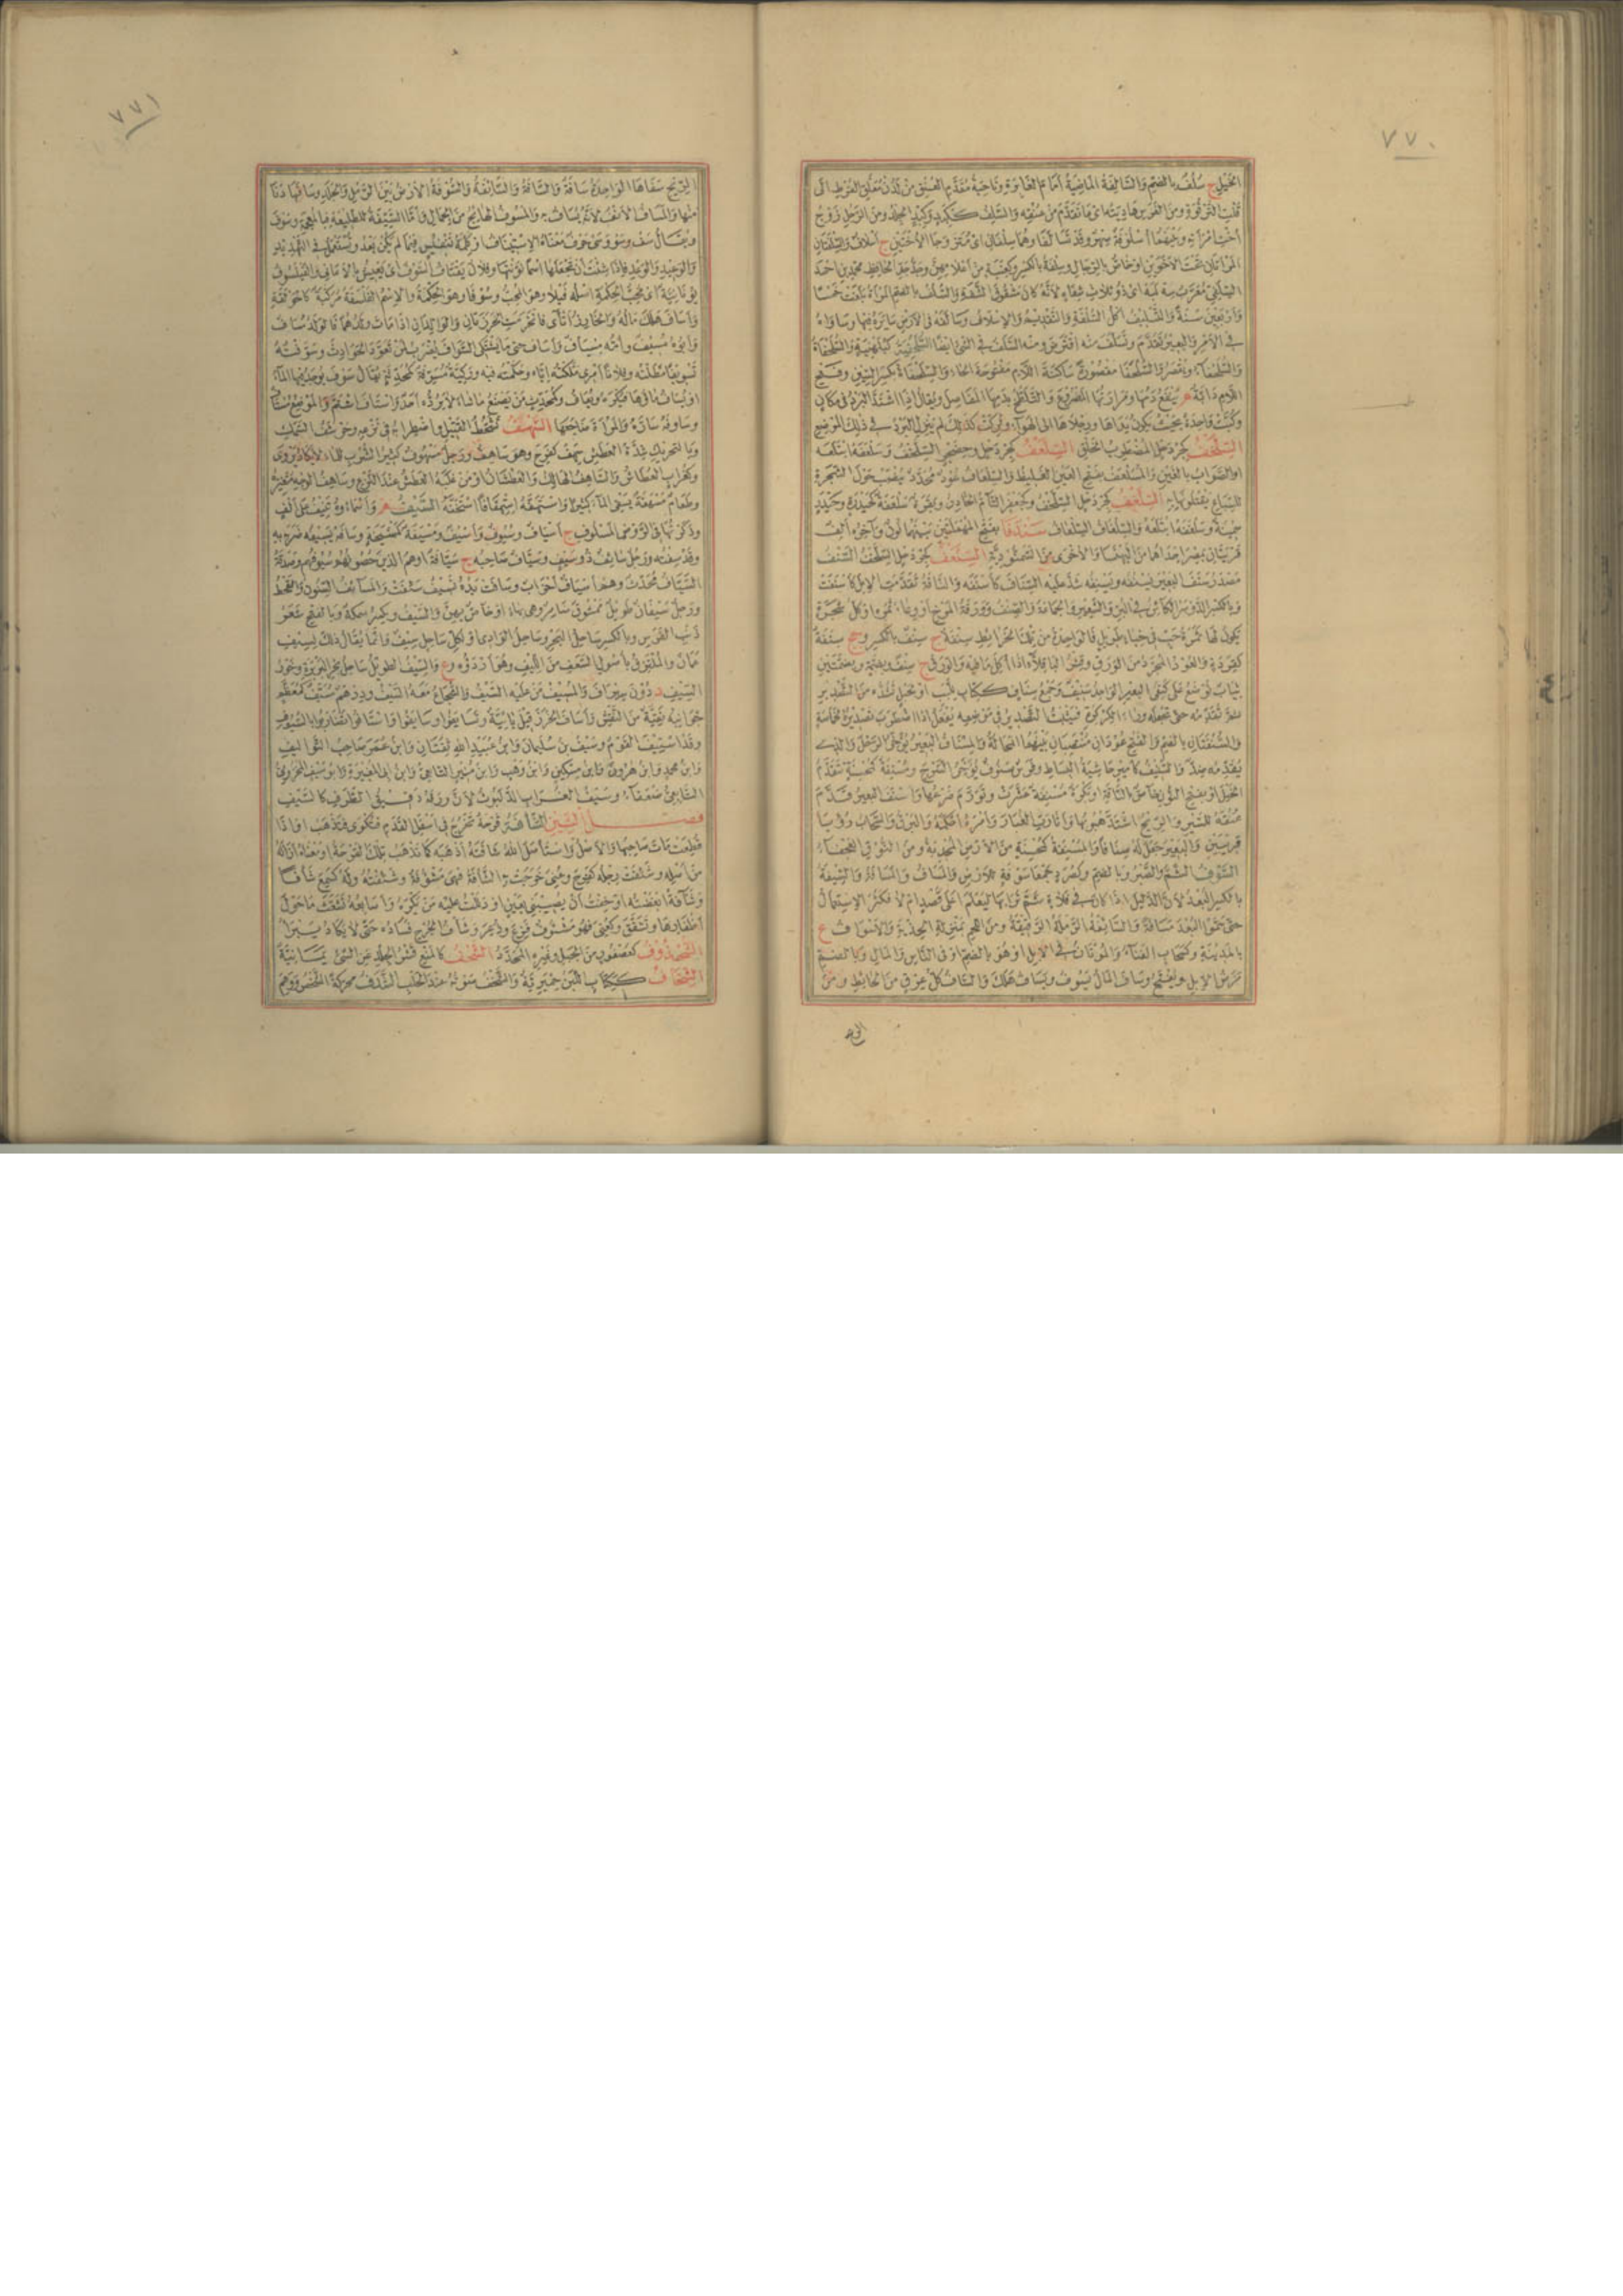 ٧٧٠
الخيل ج سُلُفٌ بالضم والسالفة الماضية أمام الغابرة وناحية مقدم العنق من لدن معلق القرط الى
قلت الترقوة ومن الفرس هاديته اى ما تقدم من عنقه والسلف ككبد وكبد الجلد ومن الرجل زوج
أخت امرأته وبينهما أسلوفة صهر وقد تسالفا وهما سلفان اى متزوجا الأختين ج أسلاف والسلفتان
المرأتان تحت الأخوين او خاص بالرجال وسلفة بالكسر وكعنبة من أعلامهن وجد جد الحافظ محمد بن احمد
السلفى معرب سه لبه اى ذو ثلاث شفاه لأنه كان مشقوق الشفة والسلف بالضم المرأة بلغت خمسا
وأربعين سنة والتسليف أكل السلفة والتقديم والإسلاف وسالفه فى الأرض سايره فيها وساواه
فى الأمر والبعير تقدم وتسلف منه اقترض ومنه السلف فى الشئ ايضا السلحفية كبلهنية والسلحفاة
والسلحفاء ويقصر والسلحفا مقصورة ساكنة اللام مفتوحة الحاء والسلحفاة بكسر السين وفتح
اللام دابة م ينفع دمها ومرارتها المصروع والتلطخ بدمها المفاصل ويقال إذا اشتد البرد فى مكان
وكبت واحدة بحيث يكون يداها ورجلاها الى الهواء وتركت كذلك لم ينزل البرد فى ذلك الموضع
السلخف كجردحل المضطرب الخلق السلعف كجردحل وحضجر السلخف وسلعفه ابتلعه
او الصواب بالغين والمسلعف بفتح العين الغليظ والسلعاف عود محدد ينصب حول الشجرة
للسباع يقتلونها به السلغف كجردحل السلخف وكجعفر التام الحادر وبقرة سلغفة
سمينة وسلغفه ابتلعه والسلغاف السلعاف سندفا بفتح المهملتين بينهما نون وآخره ألف
قريتان بمصر إحداهما من البهنسا والأخرى من السمنودية السنعف كجردحل السلخف السنف
مصدر سنف البعير يسنفه ويسنفه شد عليه السناف كأسنفه والناقة تقدمت الإبل كأسنفت
وبالكسر الدوسر الكائن فى البر والشعير والجماعة والصنف وورقة المرخ او وعاء ثمره او كل شجرة
يكون لها ثمرة حب فى خباء طويل فالواحدة من تلك الخرائط سنفة ج سنف بالكسر وجج سنفة
كقردة والعود المجرد من الورق وقشر الباقلاء اذا أكل ما فيه والورق ج سنف وبضمة وبضمتين
ثياب توضع على كتفى البعير الواحد سنيف وجمع سناف ككتاب للبب او لحبل تشده من التصدير
ثم تقدمه حتى تجعله وراء الكركرة فيثبت التصدير فى موضعه يفعل اذا اضطرب تصديره لخماصة
والسنفتان بالضم والفتح عودان منتصبان بينهما المحالة والمسناف البعير يؤخر الرحل والذى
يقدمه ضد والسنيف كأمير حاشية البساط وفرس سنوف يؤخر السرج ومسنفة كمحسنة تتقدم
الخيل او بفتح النون خاص بالناقة وبكرة مسنفة عشرت وتورم ضرعها وأسنف البعير قدم
عنقه للسير والريح اشتد هبوبها وأثارت الغبار وامره أحكمه والبرق والسحاب رؤيا
قريبين والبعير جعل له سنافا والمسنفة كمحسنة من الأرض المجدبة ومن النوق العجفاء
السوف الشم والصبر وبالضم وكصرد جمعا سوفة للأرض والمساف والمسافة والسيفة
بالكسر البعد لأن الدليل اذا كان فى فلاة شم ترابها ليعلم أعلى قصد ام لا فكثر الاستعمال
حتى سموا البعد مسافة والسائفة الرملة الرقيقة ومن اللحم بمنزلة الحذية والأسواف ع
بالمدينة وكسحاب القثاء والموتان فى الإبل او هو بالضم او فى الناس والمال وبالضم
مرض الإبل ويفتح وساف المال يسوف ويساف هلك والساف كل عرق من الحائط ومن
الريح
٧٧١
الريح سفاها الواحدة سافة والسافة والسائفة والسوفة الأرض بين الرمل والجلد وسافها دنا
منها والمساف الأنف لأنه يساف به والمسوف الهائج من الجمال وأما السيفة للطليعة فبالمعجمة وسوف
ويقال سف وسو وسى حرف معناه الاستئناف او كلمة تنفيس فيما لم يكن بعد وتستعمل فى التهديد
والوعيد والوعد فاذا شئت أن تجعلها اسما نونتها وفلان يقتات السوف اى يعيش بالأمانى والفيلسوف
يونانية اى محب الحكمة أصله فيلا وهو المحب وسوفا وهو الحكمة والاسم الفلسفة مركبة كالحوقلة
وأساف هلك ماله والخارز أثأى فانخرمت الخرزتان والوالدان اذا مات ولدهما فالولد مساف
وأبوه مسيف وأمه مسياف وأساف حتى ما يشتكى السواف يضرب لمن تعود الحوادث وسوفته
تسويفا مطلته وفلانا أمرى ملكته إياه وحكمته فيه وركية مسوفة كمحدثة يقال سوف يوجد فيها الماء
او يساف ماؤها فيكره ويعاف وكمحدث من يصنع ماشاء لا يرده أحد واستاف اشتم والموضع مستاف
وساوفه ساره والمرأة ضاجعها السهف تشحط القتيل واضطرابه فى نزعه وحرشف السمك
وبالتحريك شدة العطش سهف كفرح وهو ساهف ورجل مسهوف كثير الشرب للماء لا يكاد يروى
وكغراب العطاش والساهف الهالك والعطشان او من غلبه العطش عند النزع وساهف الوجه متغيره
وطعام مسهفة يسقى الماء كثيرا واستهفه استهفافا استخفه السيف م وأسماؤه تنيف على ألف
وذكرتها فى الروض المسلوف ج أسياف وسيوف وأسيف ومسيفة كمشيخة وسافه يسيفه ضربه به
وقد سفته ورجل سائف ذو سيف وسياف صاحبه ج سيافة او هم الذين حصونهم سيوفهم وصدقة
السياف محدث وهو أسياف أحزاب وسافت يده تسيف سئفت والمسائف السنون والقحط
ورجل سيفان طويل ممشوق ضامر وهى بهاء او خاص بهن والسيف ويكسر سمكة وبالفتح شعر
ذنب الفرس وبالكسر ساحل البحر وساحل الوادى او لكل ساحل سيف وانما يقال ذلك لسيف
عمان والملتزق بأصول السعف من الليف وهو أردؤه وع والسيف الطويل ساحل بحر البربرة وخور
السيف د دون سيراف والمسيف من عليه السيف والشجاع معه السيف ودرهم مسيف كمعظم
جوانبه نقية من النقش وأساف الخرز قيل يائية وتسايفوا وسايفوا واستافوا تضاربوا بالسيوف
وقد استيف القوم وسيف بن سليمان وابن عبيد الله ثقتان وابن عمر صاحب التواليف
وابن محمد وابن هرون وابن مسكين وابن وهب وابن منير التابعى وابن ابى المغيرة وابو سيف المخزومى
التابعى ضعفاء وسيف الغراب للدلبوث لأن ورقه دقيق الطرف كالسيف
فصل الشين الشأفة قرحة تخرج فى أسفل القدم فتكوى فتذهب او اذا
قطعت مات صاحبها والأصل واستأصل الله شأفته أذهبه كما تذهب تلك القرحة او معناه ازاله
من أصله وشئفت رجله كفرح وعنى خرجت بها الشأفة فهى مشؤفة وشئفته وله كسمع شأفا
وشآفة أبغضته او خفت أن يصيبنى بعين او دللت عليه من يكره وأصابعه تشعث ما حول
أظفارها وتشقق وكعنى فهو مشئوف فزع وذعر وشأف الجرح فساده حتى لا يكاد يبرأ
الشحذوف كعصفور من الجبل وغيره المحدد الشحف كالمنع قشر الجلد عن الشئ يمانية
الشخاف ككتاب اللبن حميرية والشخف صوته عند الحلب الشدف محركة الشخص ووهم